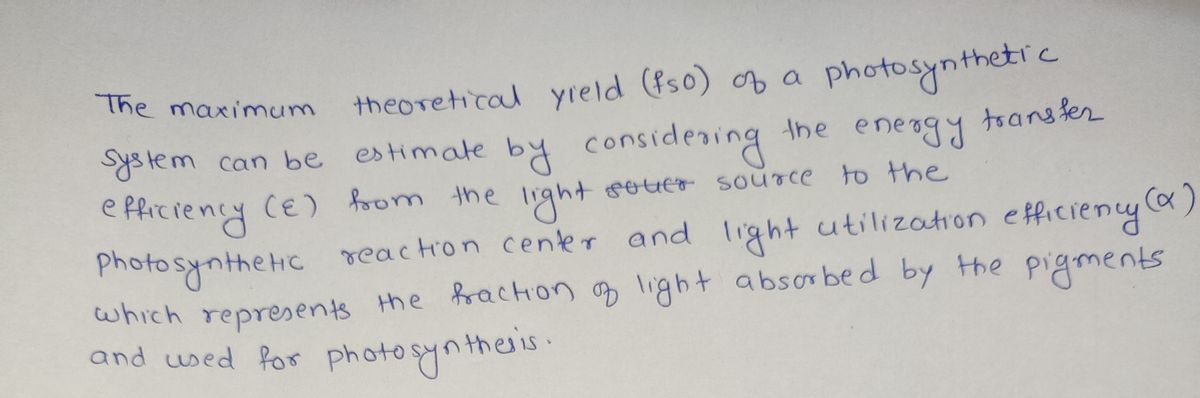 The maximum theoretical yield (fso) of a photosynthetic
system can be estimate by considering the energy transfer
efficiency (ε) from the light source to the
photosynthetic reaction center and light utilization efficiency (α)
which represents the fraction of light absorbed by the pigments
and used for photosynthesis.